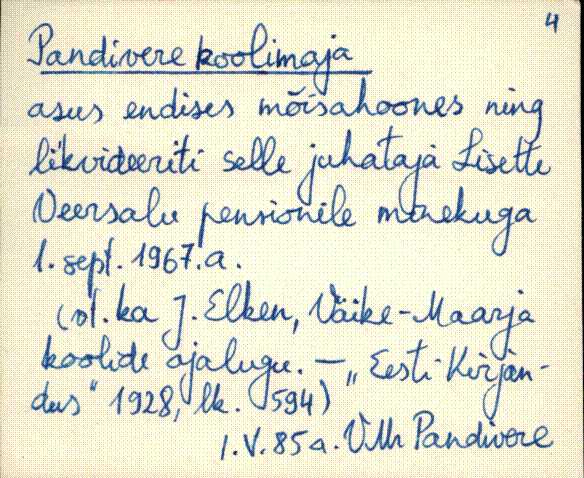 4
Pandivere koolimaja
asus endises mõisahoones ning
likvideeriti selle juhataja Lisette
Veersalu pensionile minekuga
1. sept. 1967.a.
(vt. ka J. Elken, Väike-Maarja
koolide ajalugu. — „Eesti Kirjan-
dus" 1928, lk. 594)
1.V.85 a. Pandivere